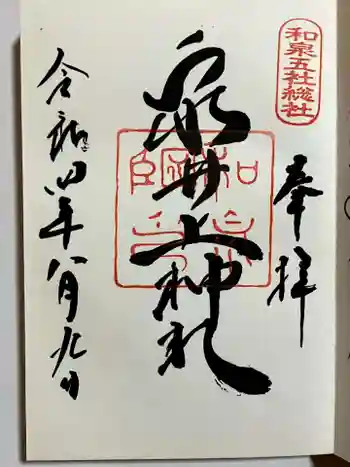 和泉五社総社
奉拝
泉井上神社
令和四年八月九日